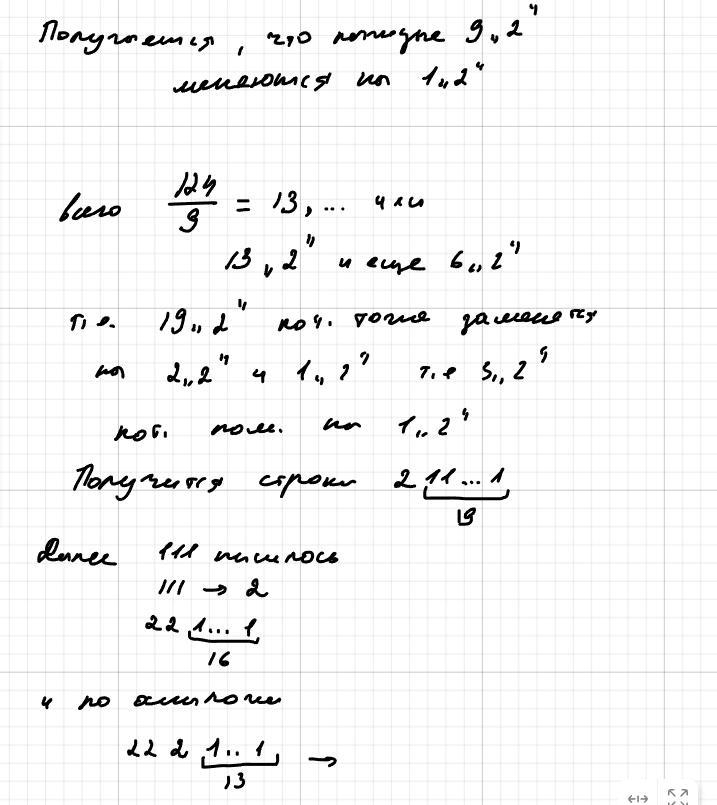 Получается, что каждые 9 „2"
меняются на 1 „2"
всего 124/9 = 13, ... или
13 „2" и еще 6 „2"
т.е. 19 „2" кот. тоже заменятся
на 2 „2" и 1 „2" т.е 3 „2"
кот. пом. на 1 „2"
Получится строка 2 11...1
19
Далее 111
111 → 2
22 1...1
16
и по аналогии
22 2 1..1 →
13